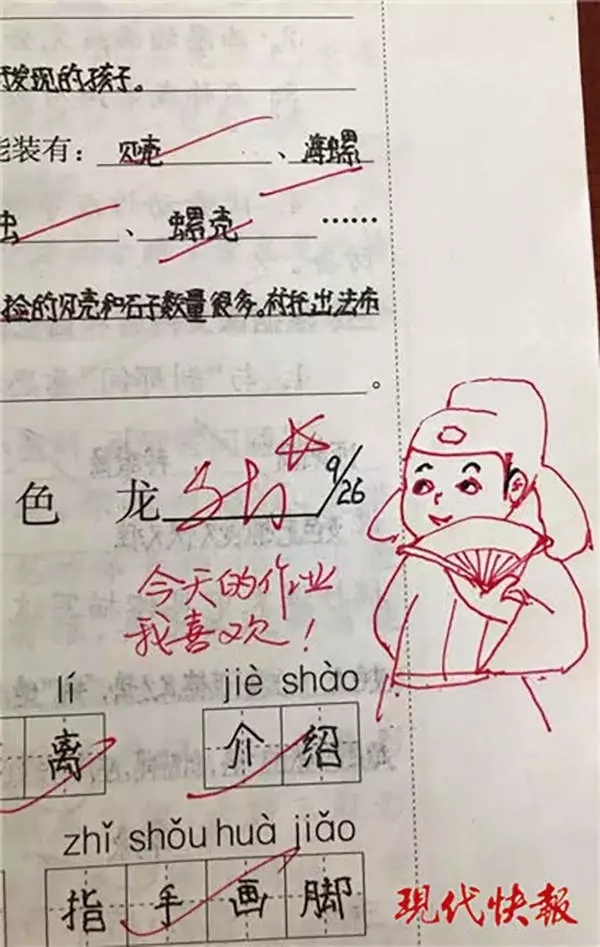 发现的孩子。
能装有：贝壳、海螺
虫、螺壳……
捡的贝壳和石子数量很多。衬托出法布
。
色 龙 9/26
今天的作业
我喜欢！
lí jiè shào
离 介绍
zhǐ shǒu huà jiǎo
指手画脚
现代快報